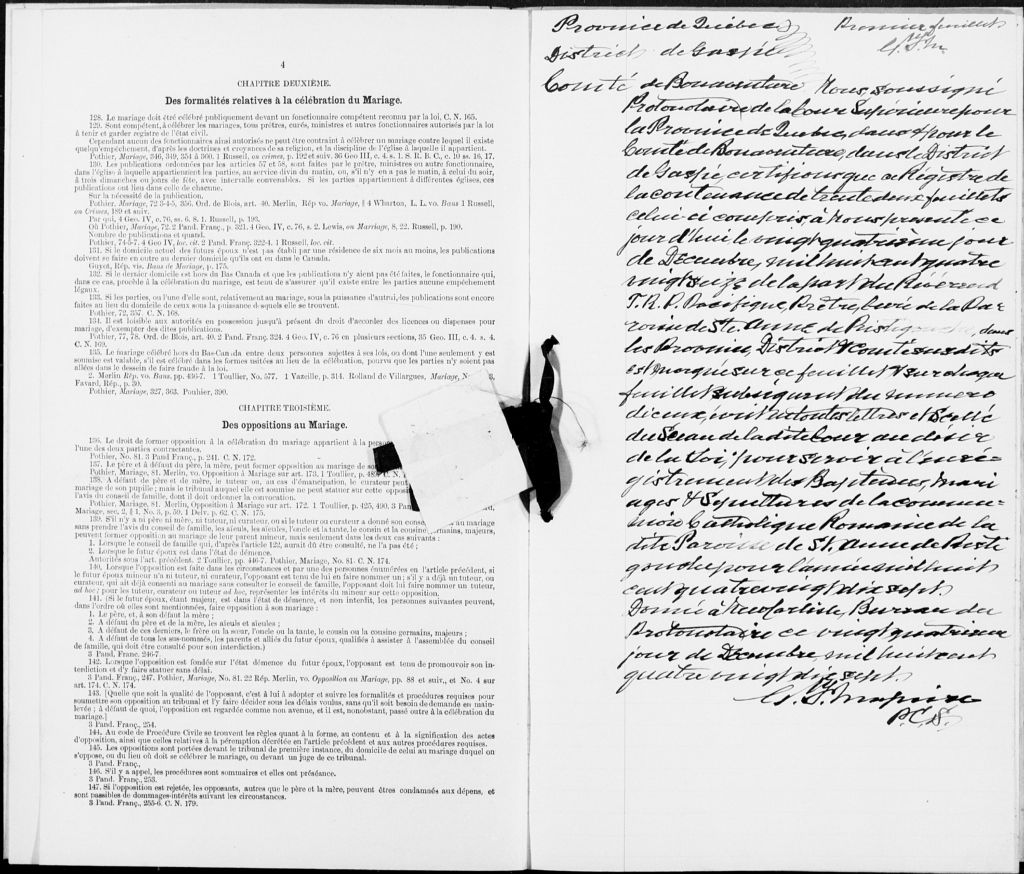 4
CHAPITRE DEUXIÈME.
Des formalités relatives à la célébration du Mariage.
128. Le mariage doit être célébré publiquement devant un fonctionnaire compétent reconnu par la loi, C. N. 165.
129. Sont compétent, à célébrer les mariages, tous prêtres, curés, ministres et autres fonctionnaires autorisés par la loi
à tenir et garder registre de l'état civil.
Cependant aucun des fonctionnaires ainsi autorisés ne peut être contraint à célébrer un mariage contre lequel il existe
quelqu'empêchement, d'après les doctrines et croyances de sa religion, et la discipline de l'église à laquelle il appartient.
Pothier, Mariage, 346, 349, 354 à 360. 1 Russell, on crimes, p. 192 et suiv. 36 Geo III, c. 4. s. 1. S. R. B. C., c. 10 ss. 16, 17.
130. Les publications ordonnées par les articles 57 et 58, sont faites par le prêtre, ministre ou autre fonctionnaire,
dans l'église à laquelle appartiennent les parties, au service divin du matin, ou, s'il n'y en a pas le matin, à celui du soir,
à trois dimanches ou jours de fête, avec intervalle convenables. Si les parties appartiennent à différentes églises, ces
publications ont lieu dans celle de chacune.
Sur la nécessité de la publication.
Pothier, Mariage, 72 3-4-5, 356. Ord. de Blois, art. 40. Merlin, Rép vo. Mariage, § 4 Wharton, L. L. vo. Bans 1 Russell,
on Crimes, 189 et suiv.
Par qui, 4 Geo. IV, c. 76, ss. 6. 8. 1. Russell, p. 193.
Où Pothier, Mariage, 72. 2 Pand. Franç., p. 321. 4 Geo. IV, c. 76, s. 2. Lewis, on Marriage, 8, 22. Russell, p. 190.
Nombre de publications et quand.
Pothier, 74-5-7. 4 Geo IV, loc. cit. 2 Pand. Franç. 322-4. 1 Russell, loc. cit.
131. Si le domicile actuel des futurs époux n'est pas établi par une résidence de six mois au moins, les publications
doivent se faire en outre au dernier domicile qu'ils ont eu dans le Canada.
Guyot, Rép. vis. Bans de Mariage, p. 175.
132. Si le dernier domicile est hors du Bas Canada et que les publications n'y aient pas été faites, le fonctionnaire qui,
dans ce cas, procède à la célébration du mariage, est tenu de s'assurer qu'il existe entre les parties aucune empêchement
légaux.
133. Si les parties, ou l'une d'elle sont, relativement au mariage, sous la puissance d'autrui, les publications sont encore
faites au lieu du domicile de ceux sous la puissance desquels elle se trouvent.
Pothier, 72, 357. C. N. 168.
134. Il est loisible aux autorités en possession jusqu'à présent du droit d'accorder des licences ou dispenses pour
mariage, d'exempter des dites publications.
Pothier, 77, 78. Ord. de Blois, art. 40. 2 Pand. Franç. 324. 4 Geo. IV, c. 76 en plusieurs sections, 35 Geo. III, c. 4. s. 4.
C. N. 169.
135. Le mariage célébré hors du Bas-Canada entre deux personnes sujettes à ses lois, ou dont l'une seulement y est
soumise est valable, s'il est célébré dans les formes usitées au lieu de la célébration, pourvu que les parties n'y soient pas
allées dans le dessein de faire fraude à la loi.
2. Merlin Rép. vo. Bans, pp. 466-7. 1 Toullier, No. 577. 1 Vazeille, p. 314. Rolland de Villargues, Mariage,
Favard, Rép., p. 30.
Pothier, Mariage, 327, 363. Pouhier, 390.
CHAPITRE TROISIÈME.
Des oppositions au Mariage.
136. Le droit de former opposition à la célébration du mariage appartient à la
l'une des deux parties contractantes.
Pothier, No. 81. 3 Pand Franç., p. 241. C. N. 172.
137. Le père et à défaut du père, la mère, peut former opposition au mariage de
Pothier, Mariage, 81. Merlin, vo. Opposition à Mariage sur art. 173. 1 Toullier, p.
138. A défaut de père et de mère, le tuteur ou, au cas d'émancipation, le curateur
mariage de son pupille; mais le tribunal auquel elle est soumise ne peut statuer sur cette
l'avis du conseil de famille, dont il doit ordonner la convocation.
Pothier, Mariage, 81. Merlin, Opposition à Mariage sur art. 172. 1 Toullier, p. 425, 490. 3
Mariage, sec. 2, § 1, No. 3, p. 59. 1 Delv. p. 62. C. N. 175.
139. S'il n'y a ni père ni mère, ni tuteur, ni curateur, ou si le tuteur ou curateur a donné son au mariage
sans prendre l'avis du conseil de famille, les aïeuls, les aïeules, l'oncle et la tante, le cousin ou la cousine germains, majeurs,
peuvent former opposition au mariage de leur parent mineur, mais seulement dans les deux cas suivants:
1. Lorsque le conseil de famille qui, d'après l'article 122, aurait dû être consulté, ne l'a pas été;
2. Lorsque le futur époux est dans l'état de démence.
Autorités sous l'art. précédent. 2 Toullier, pp. 446-7. Pothier, Mariage, No. 81. C. N. 174.
140. Lorsque l'opposition est faite dans les circonstances et par une des personnes énumérées en l'article précédent, si
le futur époux mineur n'a ni tuteur, ni curateur, l'opposant est tenu de lui en faire nommer un; s'il y a déjà un tuteur, ou
curateur, qui ait déjà consenti au mariage sans consulter le conseil de famille, l'opposant doit lui faire nommer un tuteur,
ad hoc; pour les tuteur, curateur ou tuteur ad hoc, représenter les intérêts du mineur sur cette opposition.
141. (Si le futur époux, étant majeur, est dans l'état de démence, et non interdit, les personnes suivantes peuvent,
dans l'ordre où elles sont mentionnées, faire opposition à son mariage:
1. Le père, et, à son défaut la mère;
2. A défaut du père et de la mère, les aieuls et aïeules;
3. A défaut de ces derniers, le frère ou la sœur, l'oncle ou la tante, le cousin ou la cousine germains, majeurs;
4. A défaut de tous les sus-nommés, les parents et alliés du futur époux, qualifiés à assister à l'assemblée du conseil
de famille, qui doit être consulté pour son interdiction.)
3 Pand. Franc. 246-7.
142. Lorsque l'opposition est fondée sur l'état démence du futur époux, l'opposant est tenu de promouvoir son in-
terdiction et d'y faire statuer sans délai.
3 Pand. Franç., 247. Pothier, Mariage, No. 81. 22 Rép. Merlin, vo. Opposition au Mariage, pp. 88 et suiv., et No. 4 sur
art. 174. C. N. 174.
143. [Quelque que soit la qualité de l'opposant, c'est à lui à adopter et suivre les formalités et procédures requises pour
soumettre son opposition au tribunal et l'y faire décider sous les délais voulus, sans qu'il soit besoin de demande en main-
levée; à défaut de quoi, l'opposition est regardée comme non avenue, et il est, nonobstant, passé outre à la célébration du
mariage.]
3 Pand. Franç., 254.
144. Au code de Procédure Civile se trouvent les règles quant à la forme, au contenu et à la signification des actes
d'opposition, ainsi que celles relatives à la péremption décrétée en l'article précédent et aux autres procédures requises.
145. Les oppositions sont portées devant le tribunal de première instance, du domicile de celui au mariage duquel on
s'oppose, ou du lieu où doit se célébrer le mariage, ou devant un juge de ce tribunal.
3 Pand. Franç.,
146. S'il y a appel, les procédures sont sommaires et elles ont préséance.
3 Pand. Franç., 253.
147. Si l'opposition est rejetée, les opposants, autres que le père et la mère, peuvent êtres condamnés aux dépens, et
sont passibles de dommages-intérêts suivant les circonstances.
3 Pand. Franç., 255-6. C. N. 179.
Province de Québec Premier feuillet
District de Gaspé
Comté de Bonaventure Nous, soussigné
Protonotaire de la Cour Supérieure pour
la Province de Québec, dans & pour le
Comté de Bonaventure, dans le District
de Gaspé, certifions que ce Registre de
la contenance de trente deux feuillets
celui-ci compris, à Nous présenté ce
jour d'hui le vingt quatrième jour
de Décembre, mil huit cent quatre
vingt seize de la part du Révérend
T. R. P. Pacifique, Prêtre, Curé de la Pa-
roisse de Ste. Anne de Ristigouche, dans
les Province, District & Comté susdits
est marqué sur ce feuillet & sur chaque
feuillet subséquent du numero
d'iceux, écrit en toutes lettres et Scellé
du Sceau de la dite Cour au désir
de la Loi, pour servir à l'enré-
gistrement des Baptêmes, Mari
ages & Sépultures de la commu-
nion Catholique Romaine de la
dite Paroisse de St. Anne de Risti
gouche pour l'année mil huit
cent quatre vingt dix sept.
Donné à New Carlisle, Bureau du
Protonotaire ce vingt quatrième
jour de Décembre mil huit cent
quatre vingt dix sept.
P.C.S.